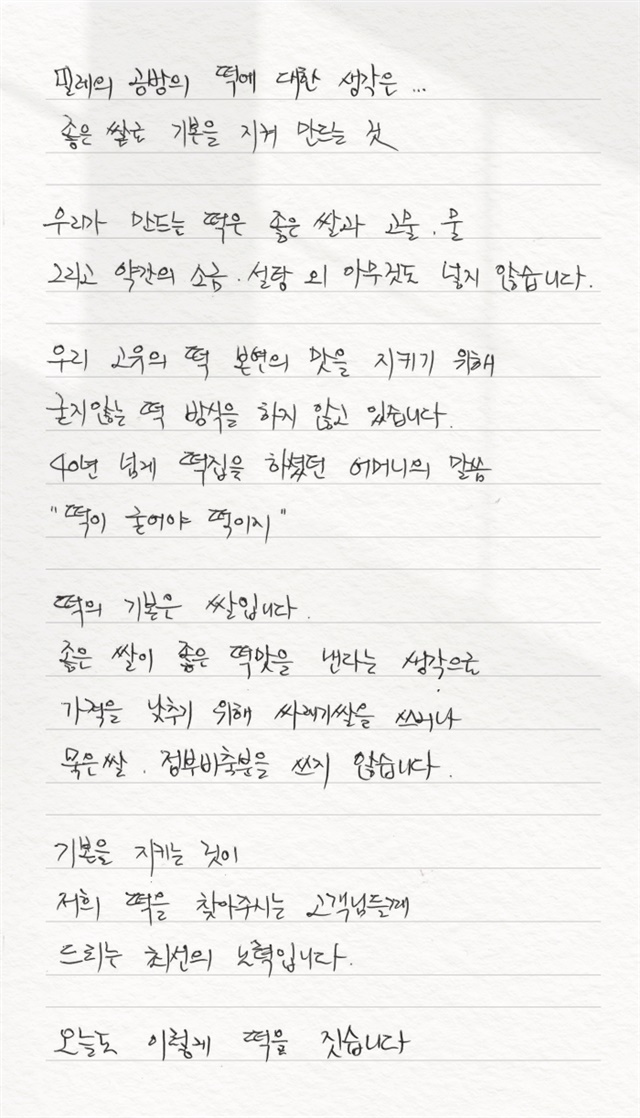 밀레의 공방의 떡에 대한 생각은 ...
좋은 쌀로 기본을 지켜 만드는 것
우리가 만드는 떡은 좋은 쌀과 고물 . 물
그리고 약간의 소금 . 설탕 외 아무것도 넣지 않습니다.
우리 고유의 떡 본연의 맛을 지키기 위해
굳지않는 떡 방식을 하지 않고 있습니다.
40년 넘게 떡집을 하셨던 어머니의 말씀
"떡이 굳어야 떡이지"
떡의 기본은 쌀입니다.
좋은 쌀이 좋은 떡맛을 낸다는 생각으로
가격을 낮추기 위해 싸래기쌀을 쓰거나
묵은쌀 . 정부비축분을 쓰지 않습니다.
기본을 지키는 것이
저희 떡을 찾아주시는 고객님들께
드리는 최선의 노력입니다.
오늘도 이렇게 떡을 짓습니다